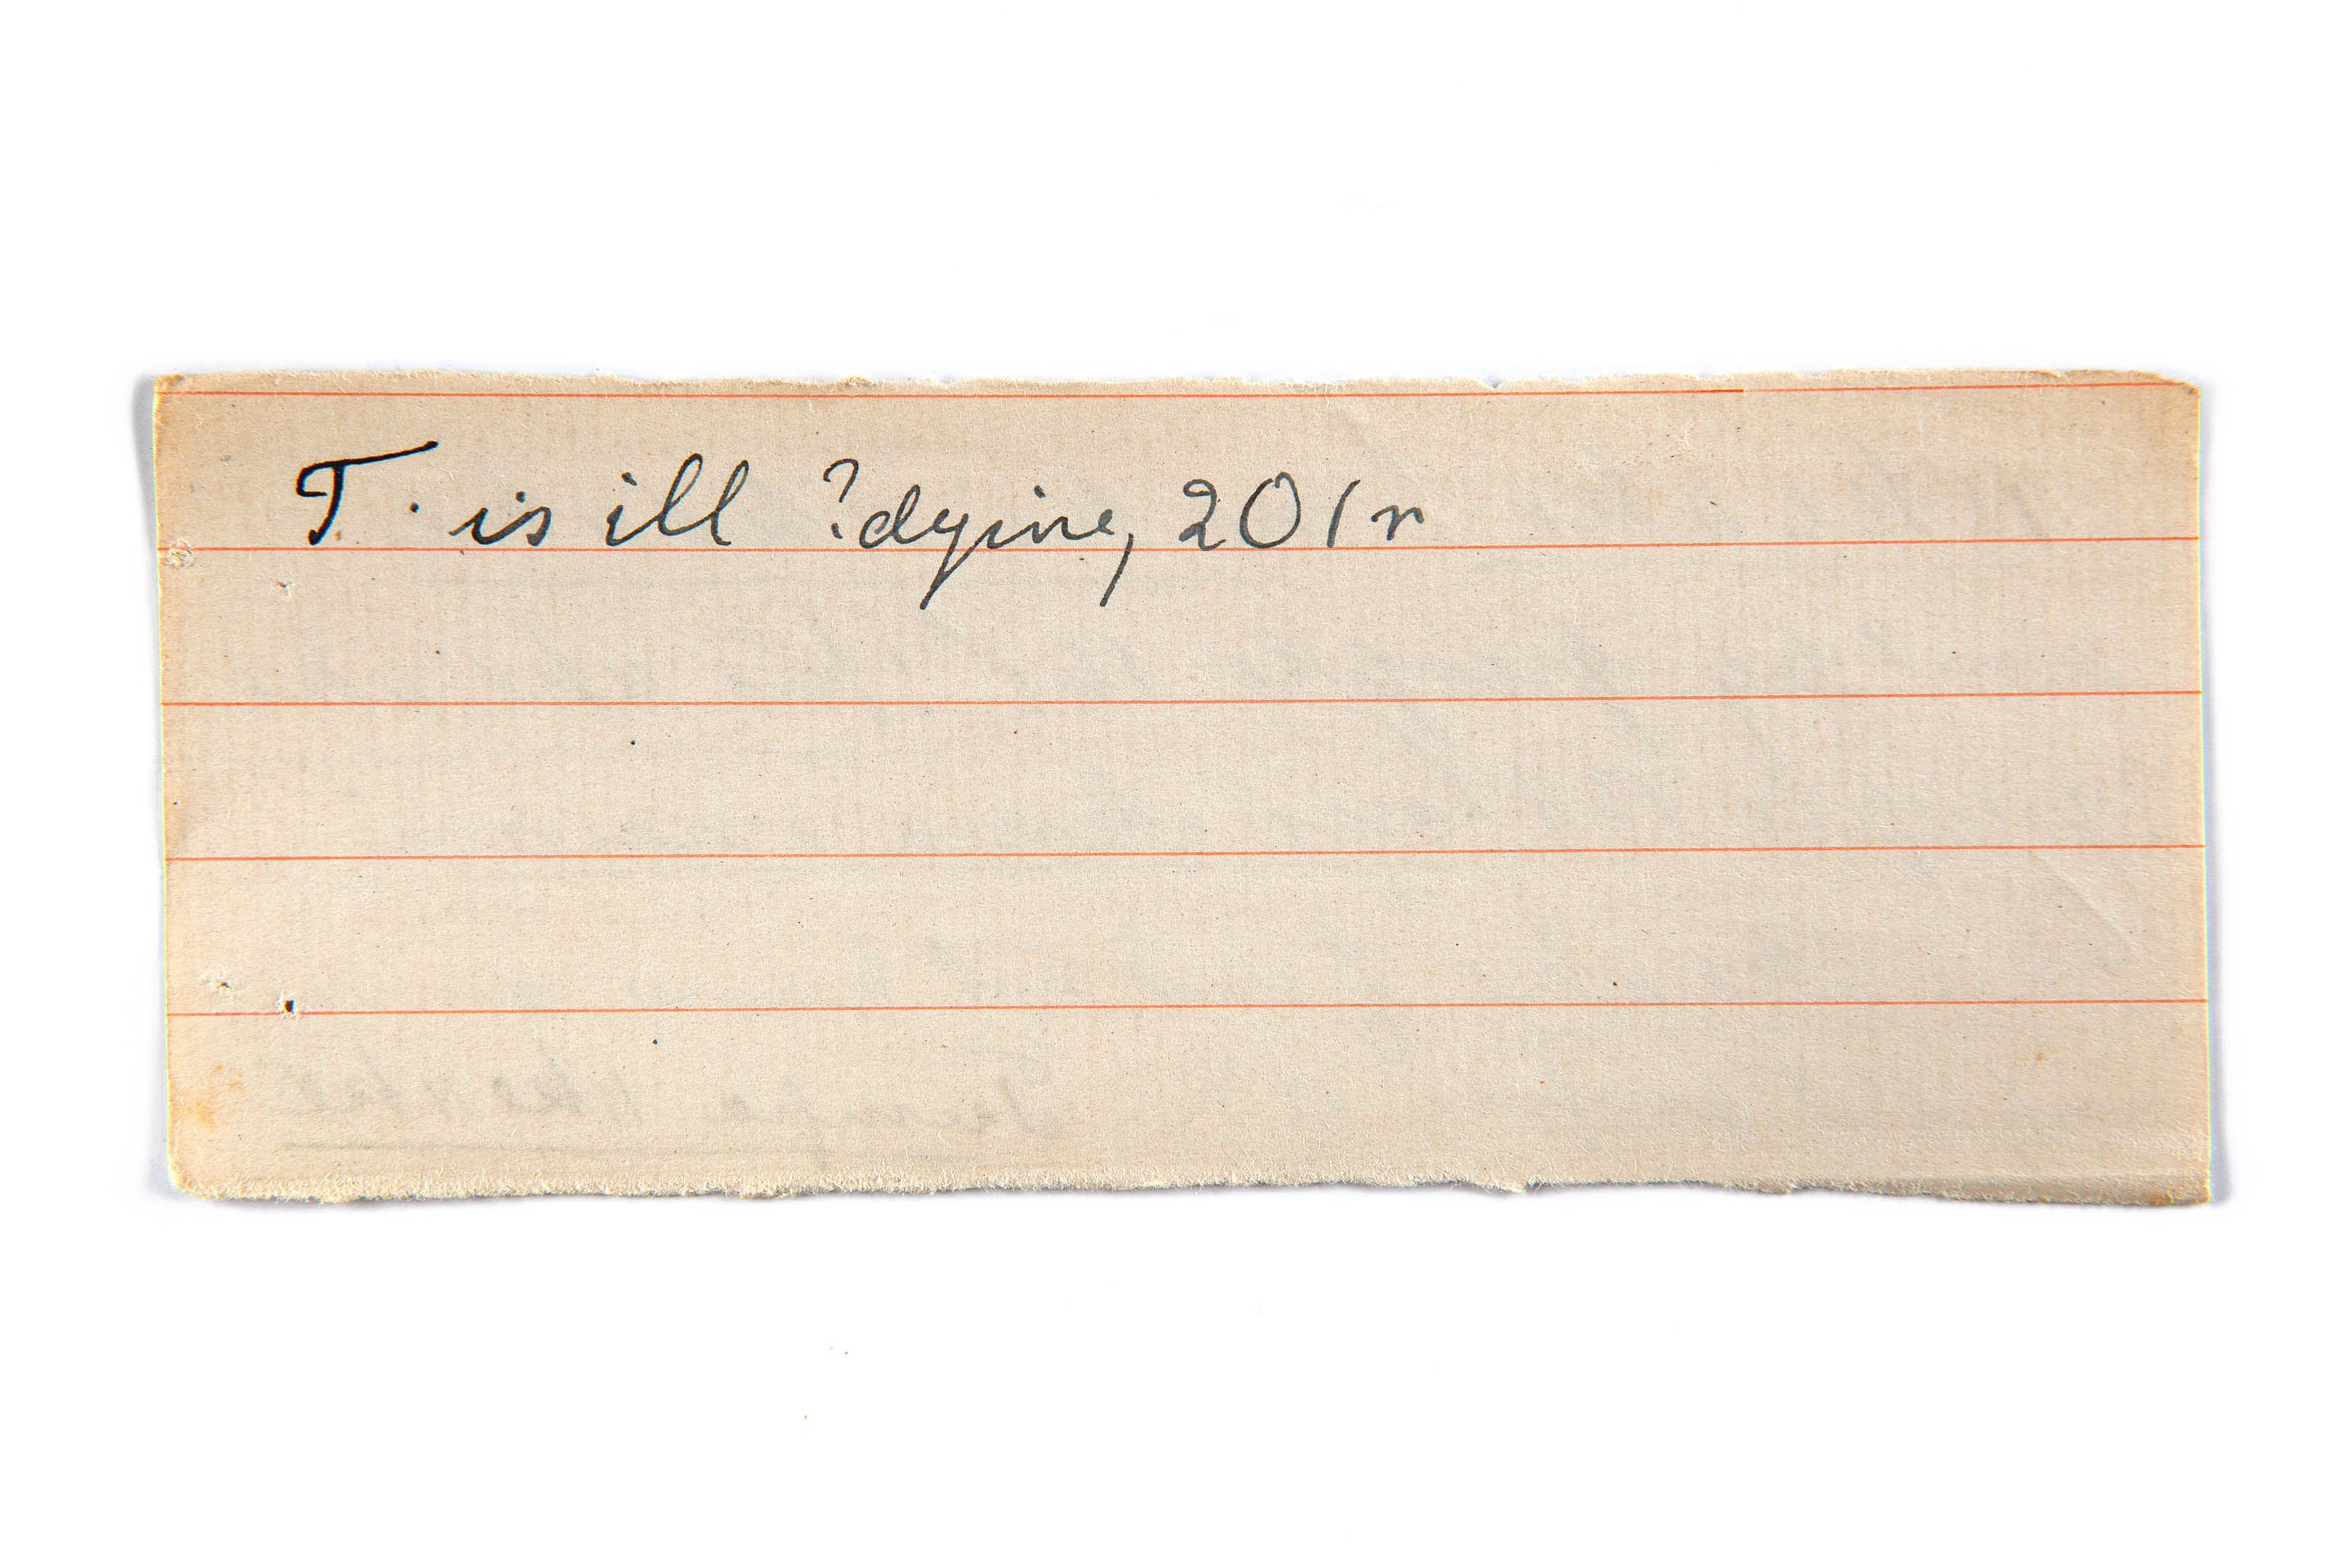 T. is ill ?dying, 201r